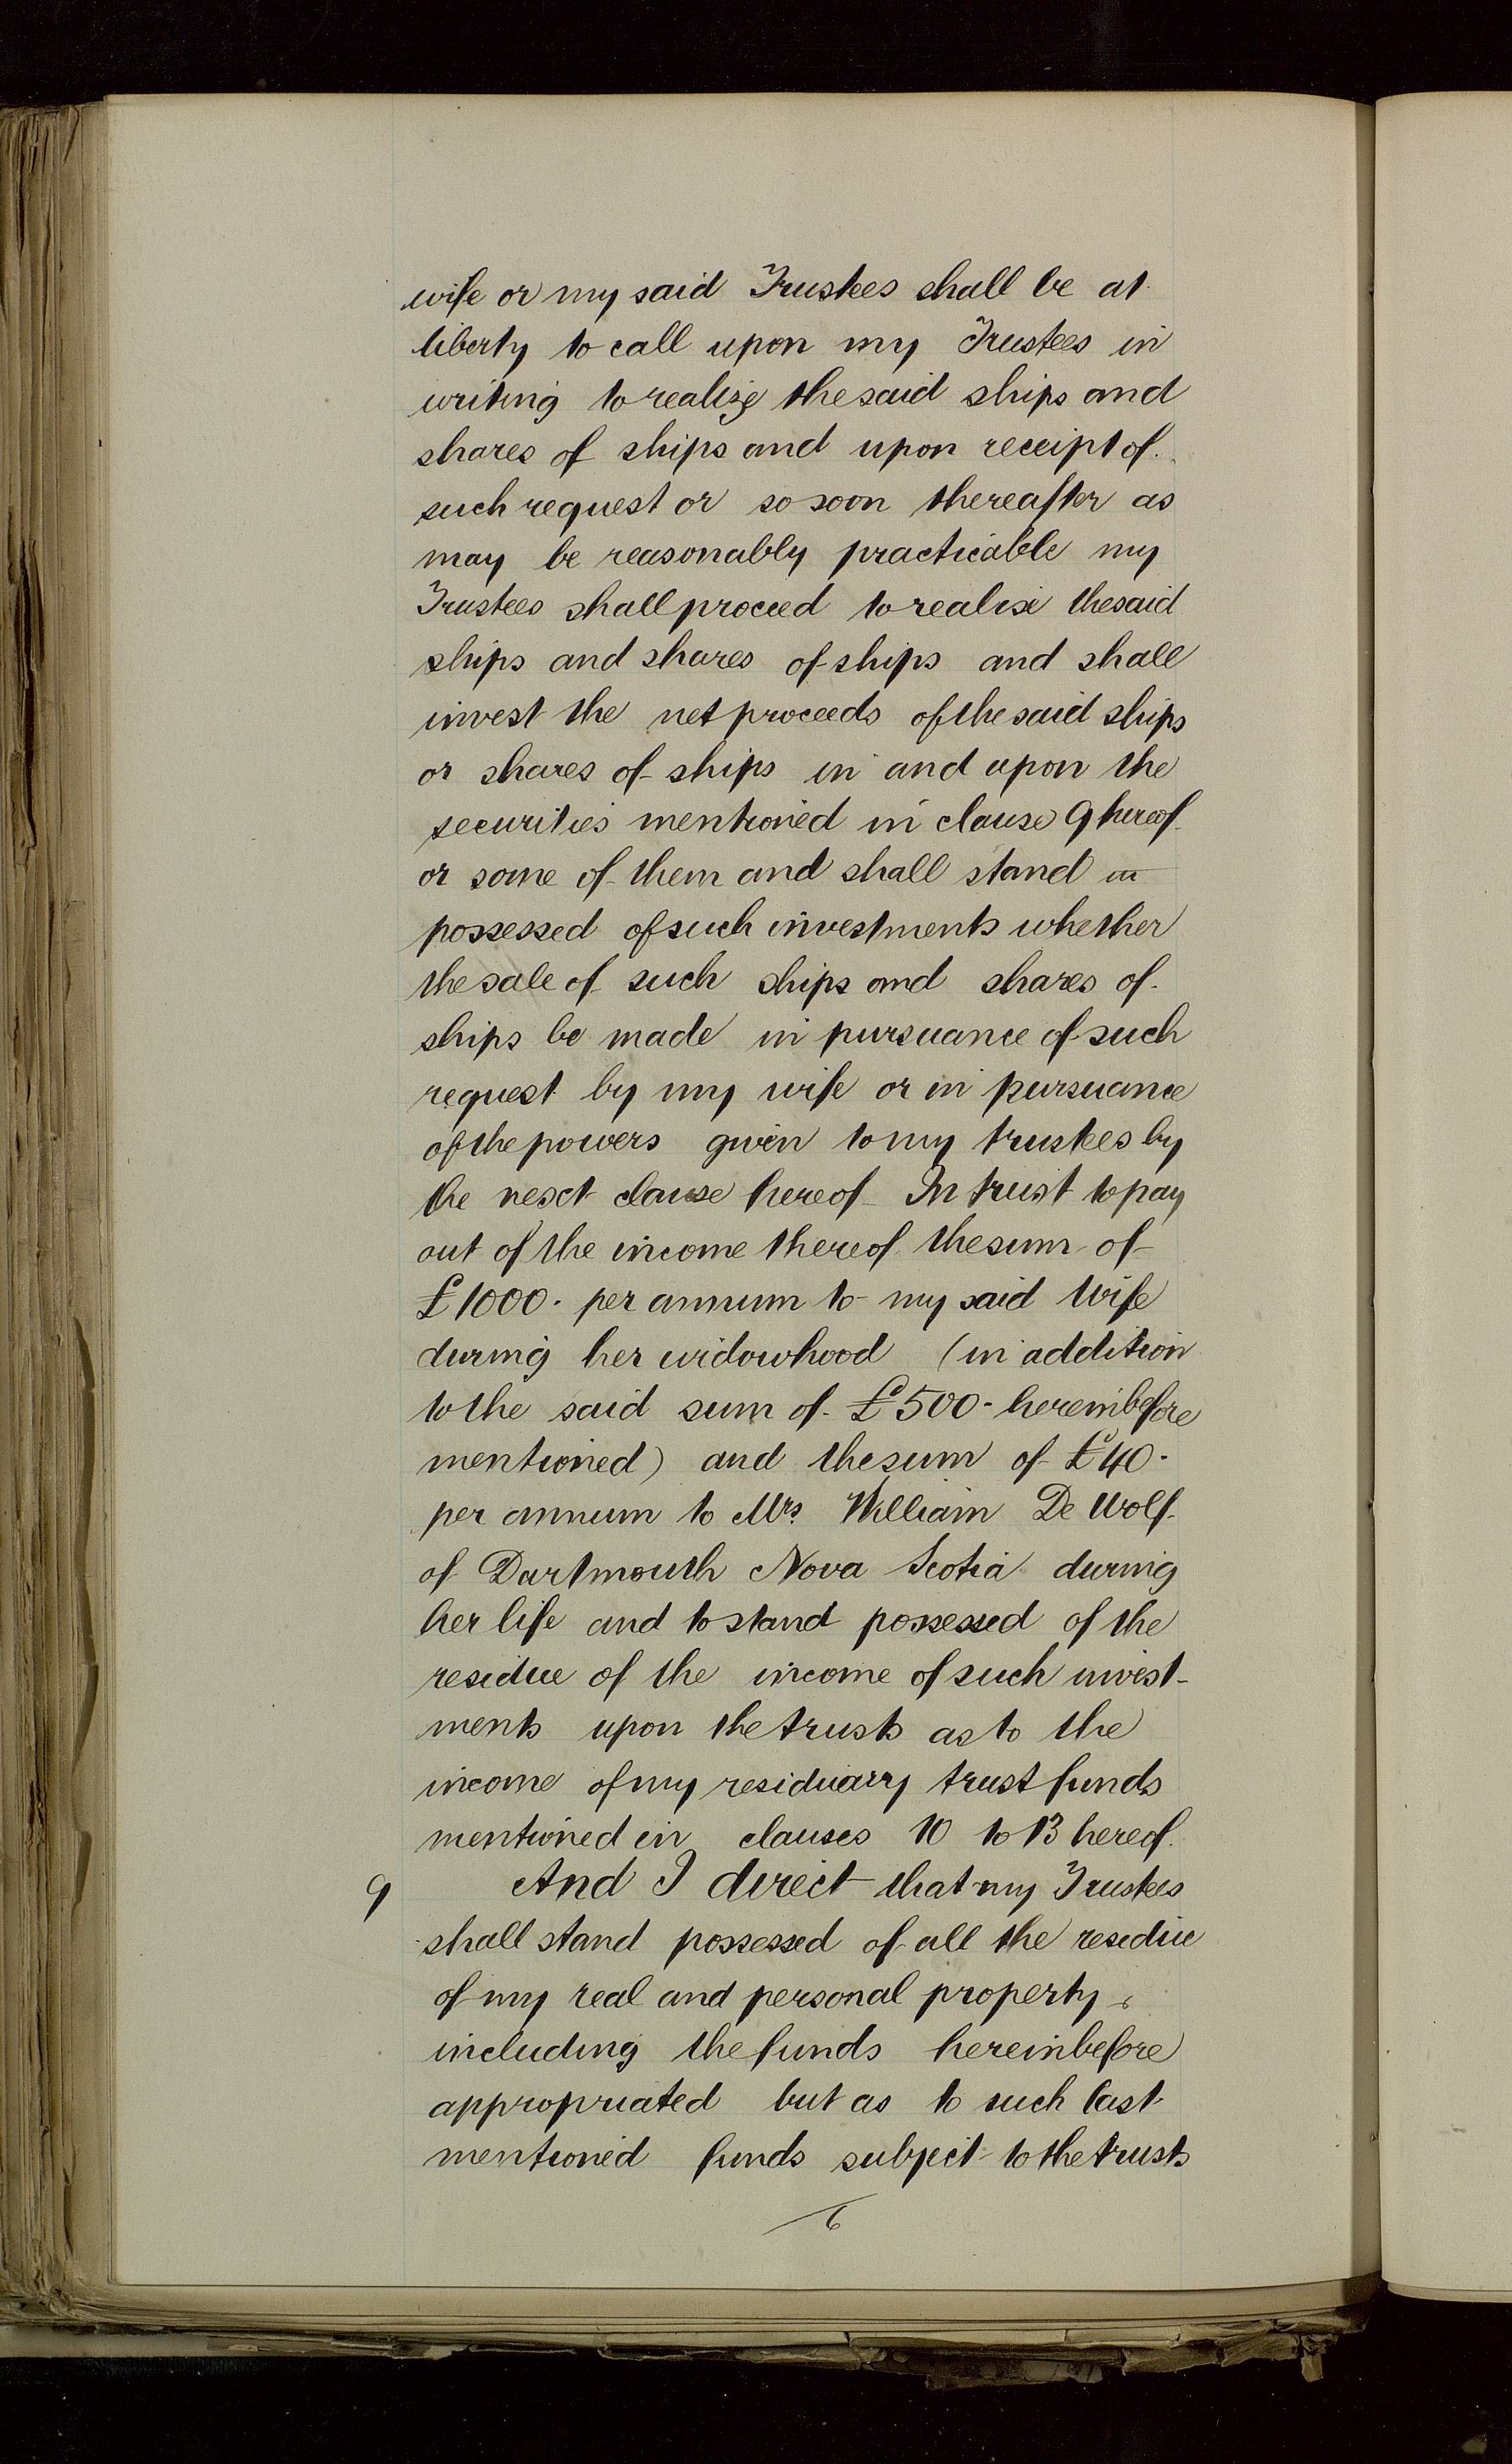 wife or my said Trustees shall be at
liberty to call upon my Trustees in
writing to realize the said ships and
shares of ships and upon receipt of
such request or so soon thereafter as
may be reasonably practicable my
Trustees shall proceed to realise the said
ships and shares of ships and shall
invest the net proceeds of the said ships
or shares of ships in and upon the
securities mentioned in clause 9 hereof
or some of them and shall stand in
possessed of such investments whether
the sale of such ships and shares of
ships be made in pursuance of such
request by my wife or in pursuance
of the powers given to my trustees by
the next clause hereof In trust to pay
out of the income thereof the sum of
£1000. per annum to my said Wife
during her widowhood (in addition
to the said sum of £500. hereinbefore
mentioned) and the sum of £40.
per annum to Mrs. William De Wolf
of Dartmouth Nova Scotia during
her life and to stand possessed of the
residue of the income of such invest-
ments upon the trusts as to the
income of my residuary trust funds
mentioned in clauses 10 to 13 hereof.
9 And I direct that my Trustees
shall stand possessed of all the residue
of my real and personal property
including the funds hereinbefore
appropriated but as to such last
mentioned funds subject to the trusts
6